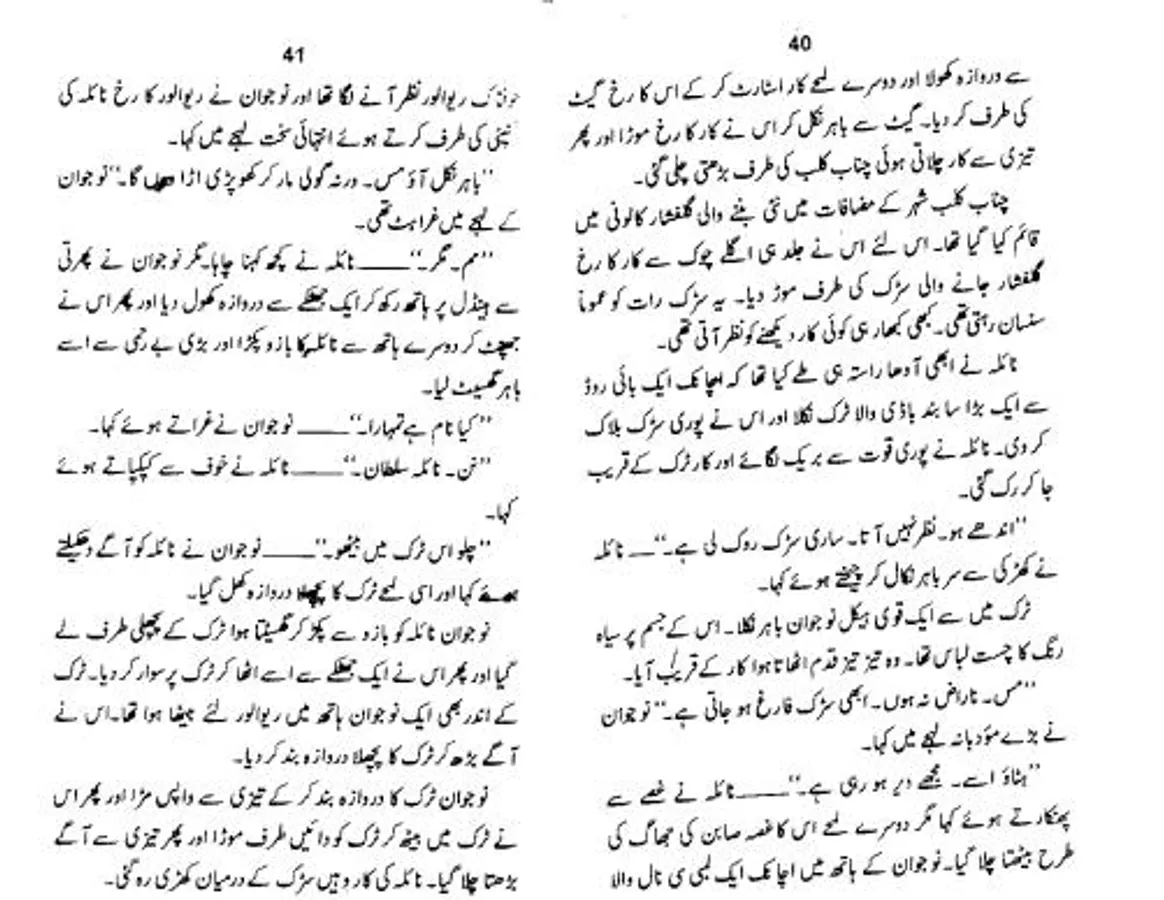 40
سے دروازہ کھولا اور دوسرے لمحے کار اسٹارٹ کر کے اس کا رخ گیٹ
کی طرف کر دیا۔ گیٹ سے باہر نکل کر اس نے کار کا رخ موڑا اور پھر
تیزی سے کار چلاتی ہوئی چناب کلب کی طرف بڑھتی چلی گئی۔
چناب کلب شہر کے مضافات میں نئی بننے والی گلفشار کالونی میں
قائم کیا گیا تھا۔ اس لئے اس نے جلد ہی اگلے چوک سے کار کا رخ
گلفشار جانے والی سڑک کی طرف موڑ دیا۔ یہ سڑک رات کو عموماً
سنسان رہتی تھی۔ کبھی کبھار ہی کوئی کار دیکھنے کو نظر آتی تھی۔
نائلہ نے ابھی آدھا راستہ ہی طے کیا تھا کہ اچانک ایک بائی روڈ
سے ایک بڑا سا بند باڈی والا ٹرک نکلا اور اس نے پوری سڑک بلاک
کر دی۔ نائلہ نے پوری قوت سے بریک لگائے اور کار ٹرک کے قریب
جا کر رک گئی۔
"اندھے ہو۔ نظر نہیں آتا۔ ساری سڑک روک لی ہے۔"ـــ نائلہ
نے کھڑکی سے سر باہر نکال کر چیختے ہوئے کہا۔
ٹرک میں سے ایک قوی ہیکل نوجوان باہر نکلا۔ اس کے جسم پر سیاہ
رنگ کا چست لباس تھا۔ وہ تیز تیز قدم اٹھاتا ہوا کار کے قریب آیا۔
"مس۔ ناراض نہ ہوں۔ ابھی سڑک فارغ ہو جاتی ہے۔" نوجوان
نے بڑے مؤدبانہ لہجے میں کہا۔
"ہٹاؤ اسے۔ مجھے دیر ہو رہی ہے۔"ـــــ نائلہ نے غصے سے
پھنکارتے ہوئے کہا مگر دوسرے لمحے اس کا غصہ صابن کی جھاگ کی
طرح بیٹھتا چلا گیا۔ نوجوان کے ہاتھ میں اچانک ایک لمبی سی نال والا
41
خوفناک ریوالور نظر آنے لگا تھا اور نوجوان نے ریوالور کا رخ نائلہ کی
کنپٹی کی طرف کرتے ہوئے انتہائی سخت لہجے میں کہا۔
"باہر نکل آؤ مس۔ ورنہ گولی مار کر کھوپڑی اڑا دوں گا۔" نوجوان
کے لہجے میں غراہٹ تھی۔
"مم۔ مگر۔"ـــــ نائلہ نے کچھ کہنا چاہا۔ مگر نوجوان نے پھرتی
سے ہینڈل پر ہاتھ رکھ کر ایک جھٹکے سے دروازہ کھول دیا اور پھر اس نے
جھپٹ کر دوسرے ہاتھ سے نائلہ کا بازو پکڑا اور بڑی بے رحمی سے اسے
باہر گھسیٹ لیا۔
"کیا نام ہے تمہارا۔"ـــــ نوجوان نے غراتے ہوئے کہا۔
"نن۔ نائلہ سلطان۔"ـــــ نائلہ نے خوف سے کپکپاتے ہوئے
کہا۔
"چلو اس ٹرک میں بیٹھو۔"ـــــ نوجوان نے نائلہ کو آگے دھکیلتے
ہوئے کہا اور اسی لمحے ٹرک کا پچھلا دروازہ کھل گیا۔
نوجوان نائلہ کو بازو سے پکڑ کر گھسیٹتا ہوا ٹرک کے پچھلی طرف لے
گیا اور پھر اس نے ایک جھٹکے سے اسے اٹھا کر ٹرک پر سوار کر دیا۔ ٹرک
کے اندر بھی ایک نوجوان ہاتھ میں ریوالور لئے بیٹھا ہوا تھا۔ اس نے
آگے بڑھ کر ٹرک کا پچھلا دروازہ بند کر دیا۔
نوجوان ٹرک کا دروازہ بند کر کے تیزی سے واپس مڑا اور پھر اس
نے ٹرک میں بیٹھ کر ٹرک کو دائیں طرف موڑا اور پھر تیزی سے آگے
بڑھتا چلا گیا۔ نائلہ کی کار وہیں سڑک کے درمیان کھڑی رہ گئی۔